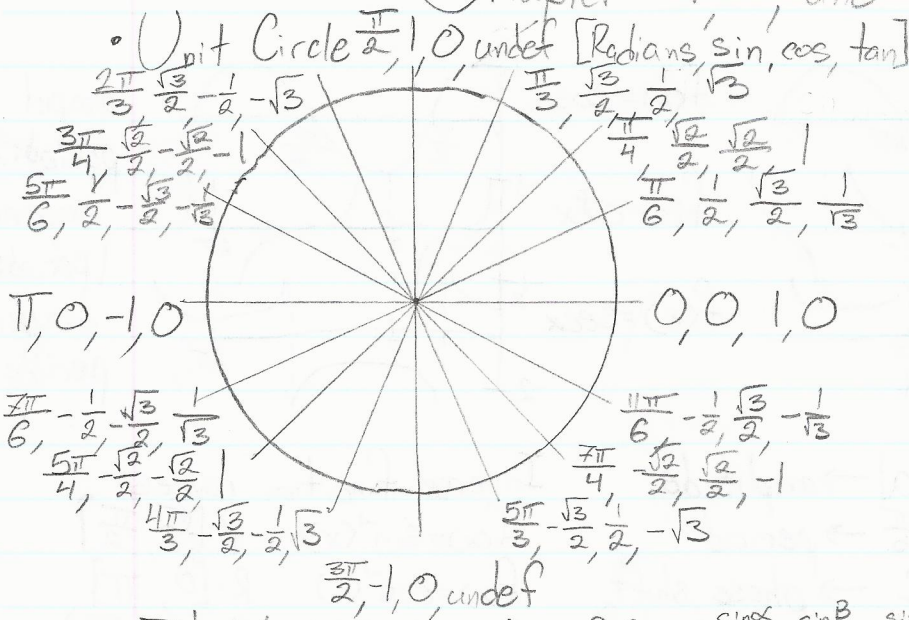 • Unit Circle π/2, 1, 0, undef [Radians, sin, cos, tan]
2π/3, √3/2, -1/2, -√3
π/3, √3/2, 1/2, √3
3π/4, √2/2, -√2/2, -1
π/4, √2/2, √2/2, 1
5π/6, 1/2, -√3/2, -1/√3
π/6, 1/2, √3/2, 1/√3
π, 0, -1, 0
0, 0, 1, 0
7π/6, -1/2, -√3/2, 1/√3
11π/6, -1/2, √3/2, -1/√3
5π/4, -√2/2, -√2/2, 1
7π/4, -√2/2, √2/2, -1
4π/3, -√3/2, -1/2, √3
5π/3, -√3/2, 1/2, -√3
3π/2, -1, 0, undef